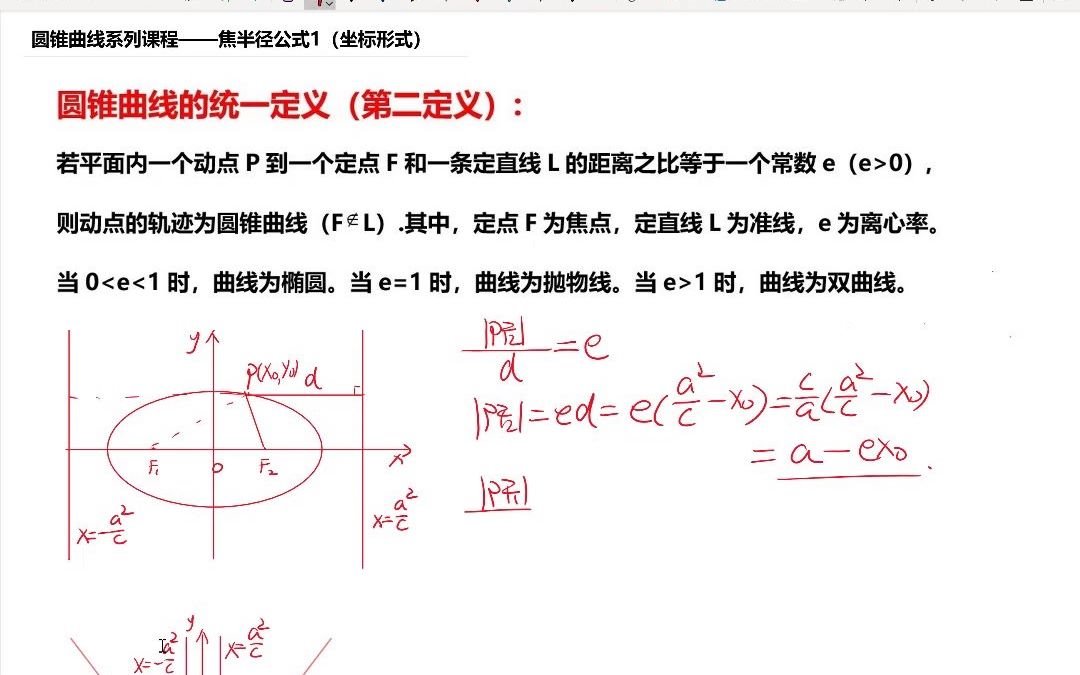 圆锥曲线系列课程——焦半径公式1（坐标形式）
圆锥曲线的统一定义（第二定义）:
若平面内一个动点 P 到一个定点 F 和一条定直线 L 的距离之比等于一个常数 e（e>0），
则动点的轨迹为圆锥曲线（F∉L）.其中，定点 F 为焦点，定直线 L 为准线，e 为离心率。
当 0<e<1 时，曲线为椭圆。当 e=1 时，曲线为抛物线。当 e>1 时，曲线为双曲线。
y
P(x₀,y₀) d
F₁ o F₂ x
x=-a²/c
x=a²/c
|PF₂|/d=e
|PF₂|=ed=e(a²/c-x₀)=c/a(a²/c-x₀)
=a-ex₀.
|PF₁|
y
x=-a²/c x=a²/c